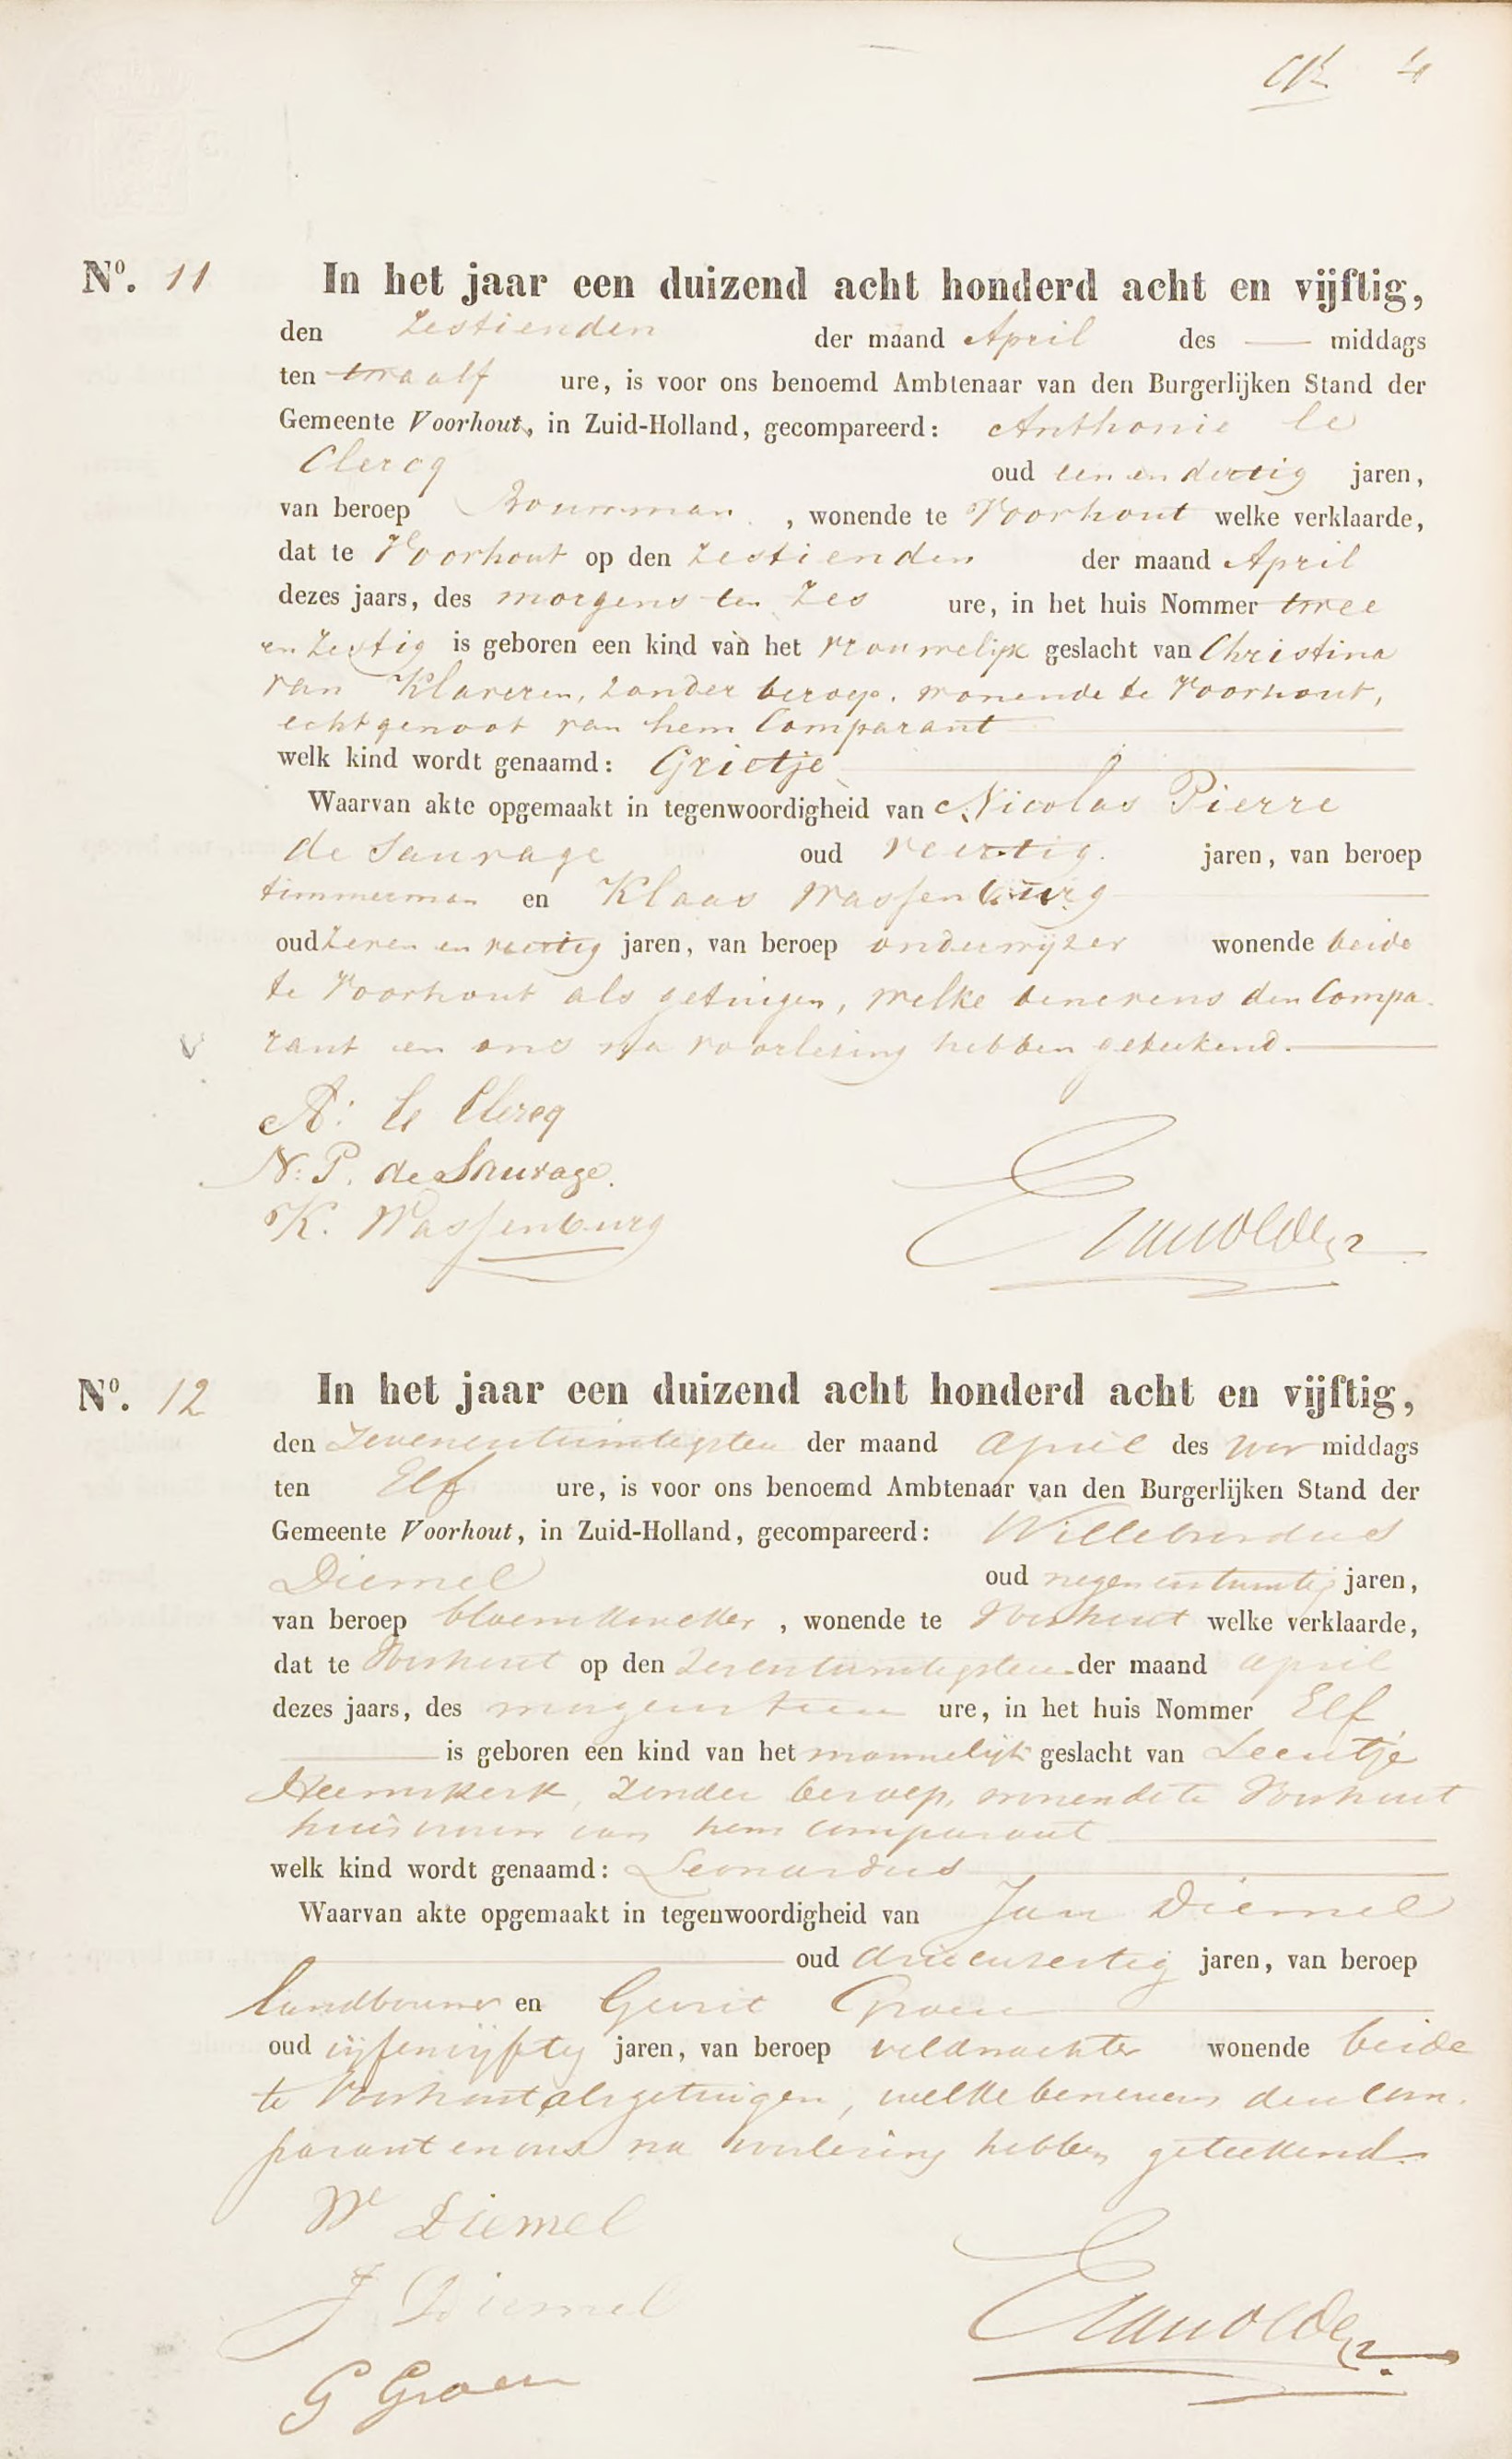 4
Nº. 11 In het jaar een duizend acht honderd acht en vijftig,
den Zestienden der maand April des — middags
ten twaalf ure, is voor ons benoemd Ambtenaar van den Burgerlijken Stand der
Gemeente Voorhout, in Zuid-Holland, gecompareerd: Anthonie le
Clercq oud een en dertig jaren,
van beroep Bouwman, wonende te Voorhout welke verklaarde,
dat te Voorhout op den Zestienden der maand April
dezes jaars, des morgens ten Zes ure, in het huis Nommer twee
en Zestig is geboren een kind van het vrouwelijk geslacht van Christina
van Klaveren, zonder beroep, wonende te Voorhout,
echtgenoot van hem Comparant
welk kind wordt genaamd: Grietje
Waarvan akte opgemaakt in tegenwoordigheid van Nicolas Pierre
de Sauvage oud veertig jaren, van beroep
timmerman en Klaas Wassenburg
oud Zeven en veertig jaren, van beroep onderwijzer wonende beide
te Voorhout als getuigen, welke benevens den Compa-
rant en ons na voorlezing hebben geteekend.
A: le Clercq
N: P. de Sauvage.
K. Wassenburg
Nº. 12 In het jaar een duizend acht honderd acht en vijftig,
den Zevenentwintigsten der maand April des voor middags
ten Elf ure, is voor ons benoemd Ambtenaar van den Burgerlijken Stand der
Gemeente Voorhout, in Zuid-Holland, gecompareerd: Willebrordus
Diemel oud negenentwintig jaren,
van beroep bloemkweeker, wonende te Voorhout welke verklaarde,
dat te Voorhout op den Zevenentwintigsten der maand April
dezes jaars, des morgens ten twee ure, in het huis Nommer Elf
is geboren een kind van het mannelijk geslacht van Leentje
Heemskerk, zonder beroep, wonende te Voorhout
huisvrouw van hem comparant
welk kind wordt genaamd: Leonardus
Waarvan akte opgemaakt in tegenwoordigheid van Jan Diemel
oud drieenveertig jaren, van beroep
landbouwer en Gerrit Groen
oud vijfenvijftig jaren, van beroep veldwachter wonende beide
te Voorhout als getuigen, welke benevens den com-
parant en ons na voorlezing hebben geteekend
W Diemel
J Diemel
G Groen